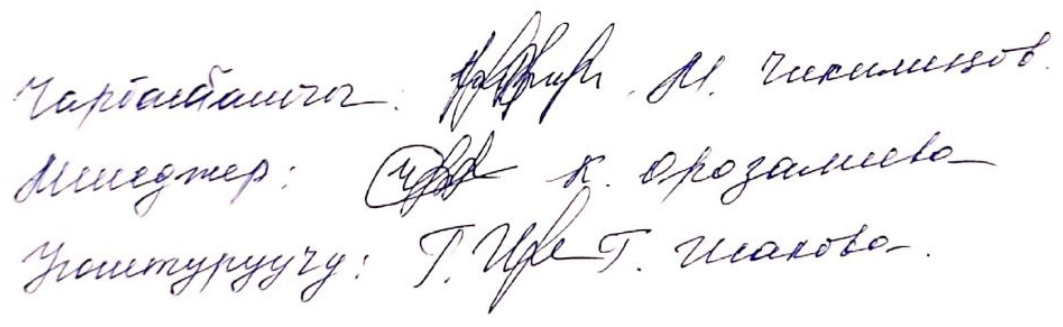 Чарбачы: М. Чикилинцов.
Менеджер: К. Орозалиева
Уюштуруучу: Г. Исакова.